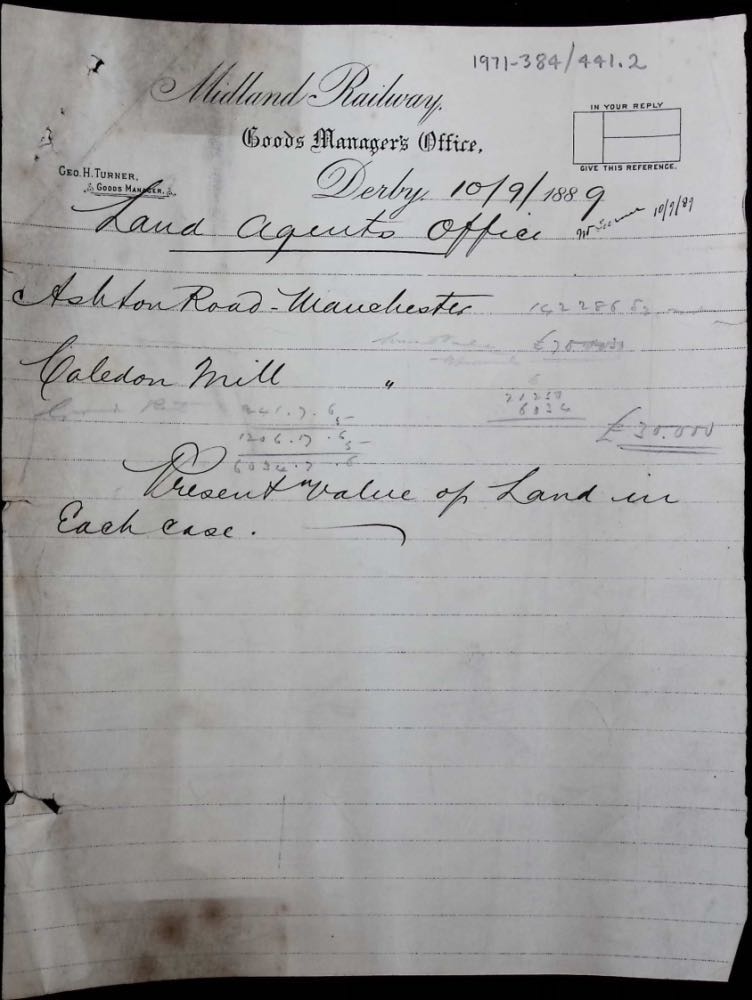 1971-384/441.2
Midland Railway.
Goods Manager's Office,
IN YOUR REPLY
GIVE THIS REFERENCE.
GEO. H. TURNER,
GOODS MANAGER.
Derby, 10/9/1889
Land Agents Office
10/9/89
Ashton Road - Manchester
Caledon Mill "
21250
6034
241.7.6
5
£30.000
1206.17.6
5
6034.7.6
Present value of Land in
Each case.